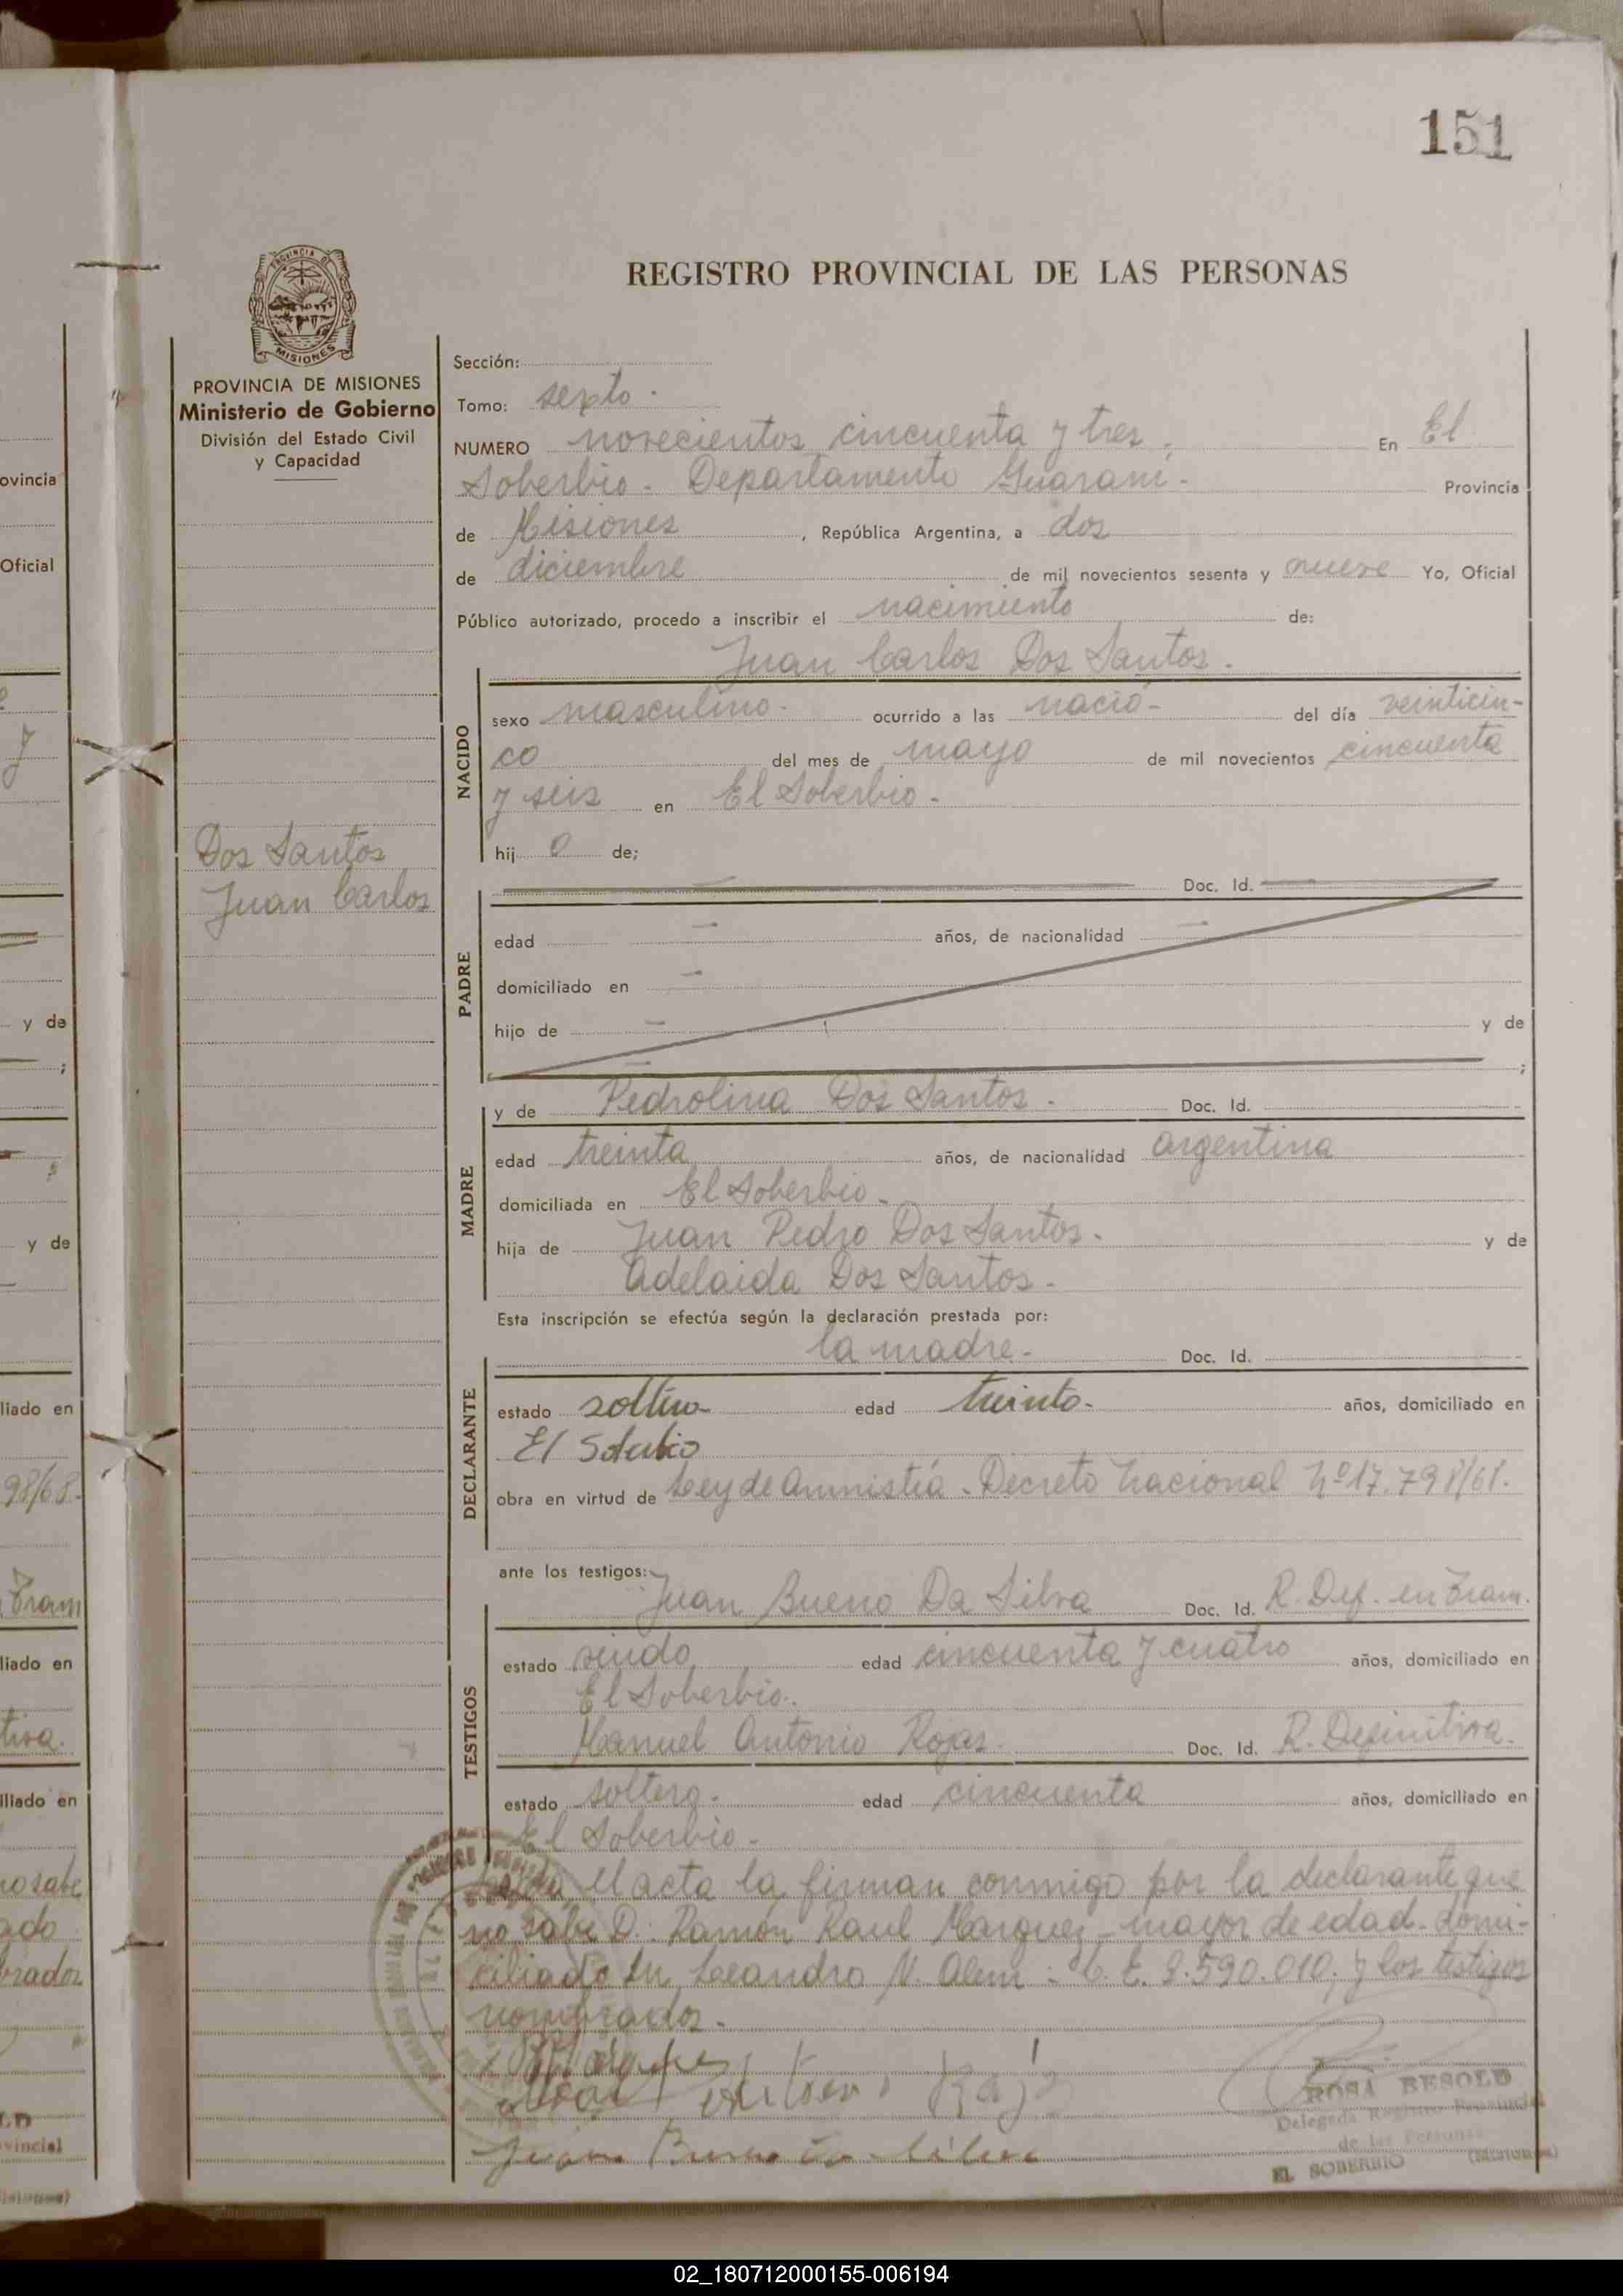 151
PROVINCIA DE
MISIONES
REGISTRO PROVINCIAL DE LAS PERSONAS
PROVINCIA DE MISIONES
Ministerio de Gobierno
División del Estado Civil
y Capacidad
Dos Santos
Juan Carlos
Sección:
Tomo: sexto.
NUMERO novecientos cincuenta y tres. En El
Soberbio - Departamento Guaraní - Provincia
de Misiones, República Argentina, a dos
de diciembre de mil novecientos sesenta y nueve Yo, Oficial
Público autorizado, procedo a inscribir el nacimiento de:
Juan Carlos Dos Santos.
NACIDO
sexo masculino. ocurrido a las nació - del día veinticin-
co del mes de mayo de mil novecientos cincuenta
y seis en El Soberbio -
hij o de;
PADRE
Doc. Id.
edad años, de nacionalidad
domiciliado en
hijo de y de
;
MADRE
y de Pedrolina Dos Santos. Doc. Id.
edad treinta años, de nacionalidad argentina
domiciliada en El Soberbio -
hija de Juan Pedro Dos Santos. y de
Adelaida Dos Santos -
Esta inscripción se efectúa según la declaración prestada por:
la madre - Doc. Id.
DECLARANTE
estado soltera edad treinta - años, domiciliado en
El Soberbio
obra en virtud de Ley de Amnistía - Decreto Nacional Nº 17.798/68.
ante los testigos:
TESTIGOS
Juan Bueno Da Silva Doc. Id. R. Def. en Tram.
estado viudo edad cincuenta y cuatro años, domiciliado en
El Soberbio.
Manuel Antonio Rojas. Doc. Id. R. Definitiva.
estado soltero. edad cincuenta años, domiciliado en
El Soberbio -
el acta la firman conmigo por la declarante que
no sabe D. Ramón Raul Marquez - mayor de edad - domi-
ciliado en Leandro N. Alem -
y los testigos
nombrados -
Juan Bueno da Silva
ROSA BESOLD
Delegada Registro Provincial
de las Personas
EL SOBERBIO (Misiones)
ovincia
Oficial
y de
;
y de
liado en
98/68.
Tram
liado en
tiva.
iliado en
no sabe
ado
brados
LD
vincial
02_180712000155-006194